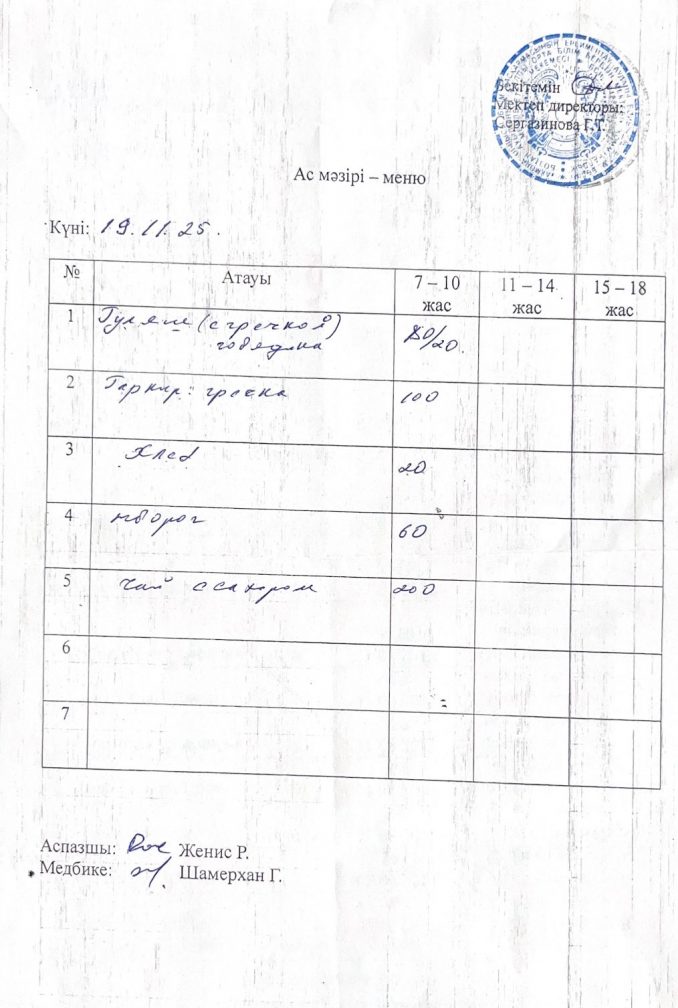 Бекітемін
Мектеп директоры:
Сергазинова Г.Т.
Ас мәзірі – меню
Күні: 19.11.25.
№ Атауы 7 – 10 жас 11 – 14 жас 15 – 18 жас
1 Гуляш (с гречкой) 80/20.
говядина
2 Гарнир: гречка 100
3 Хлеб 20
4 творог 60
5 чай с сахаром 200
6
7
Аспазшы: Женис Р.
Медбике: Шамерхан Г.